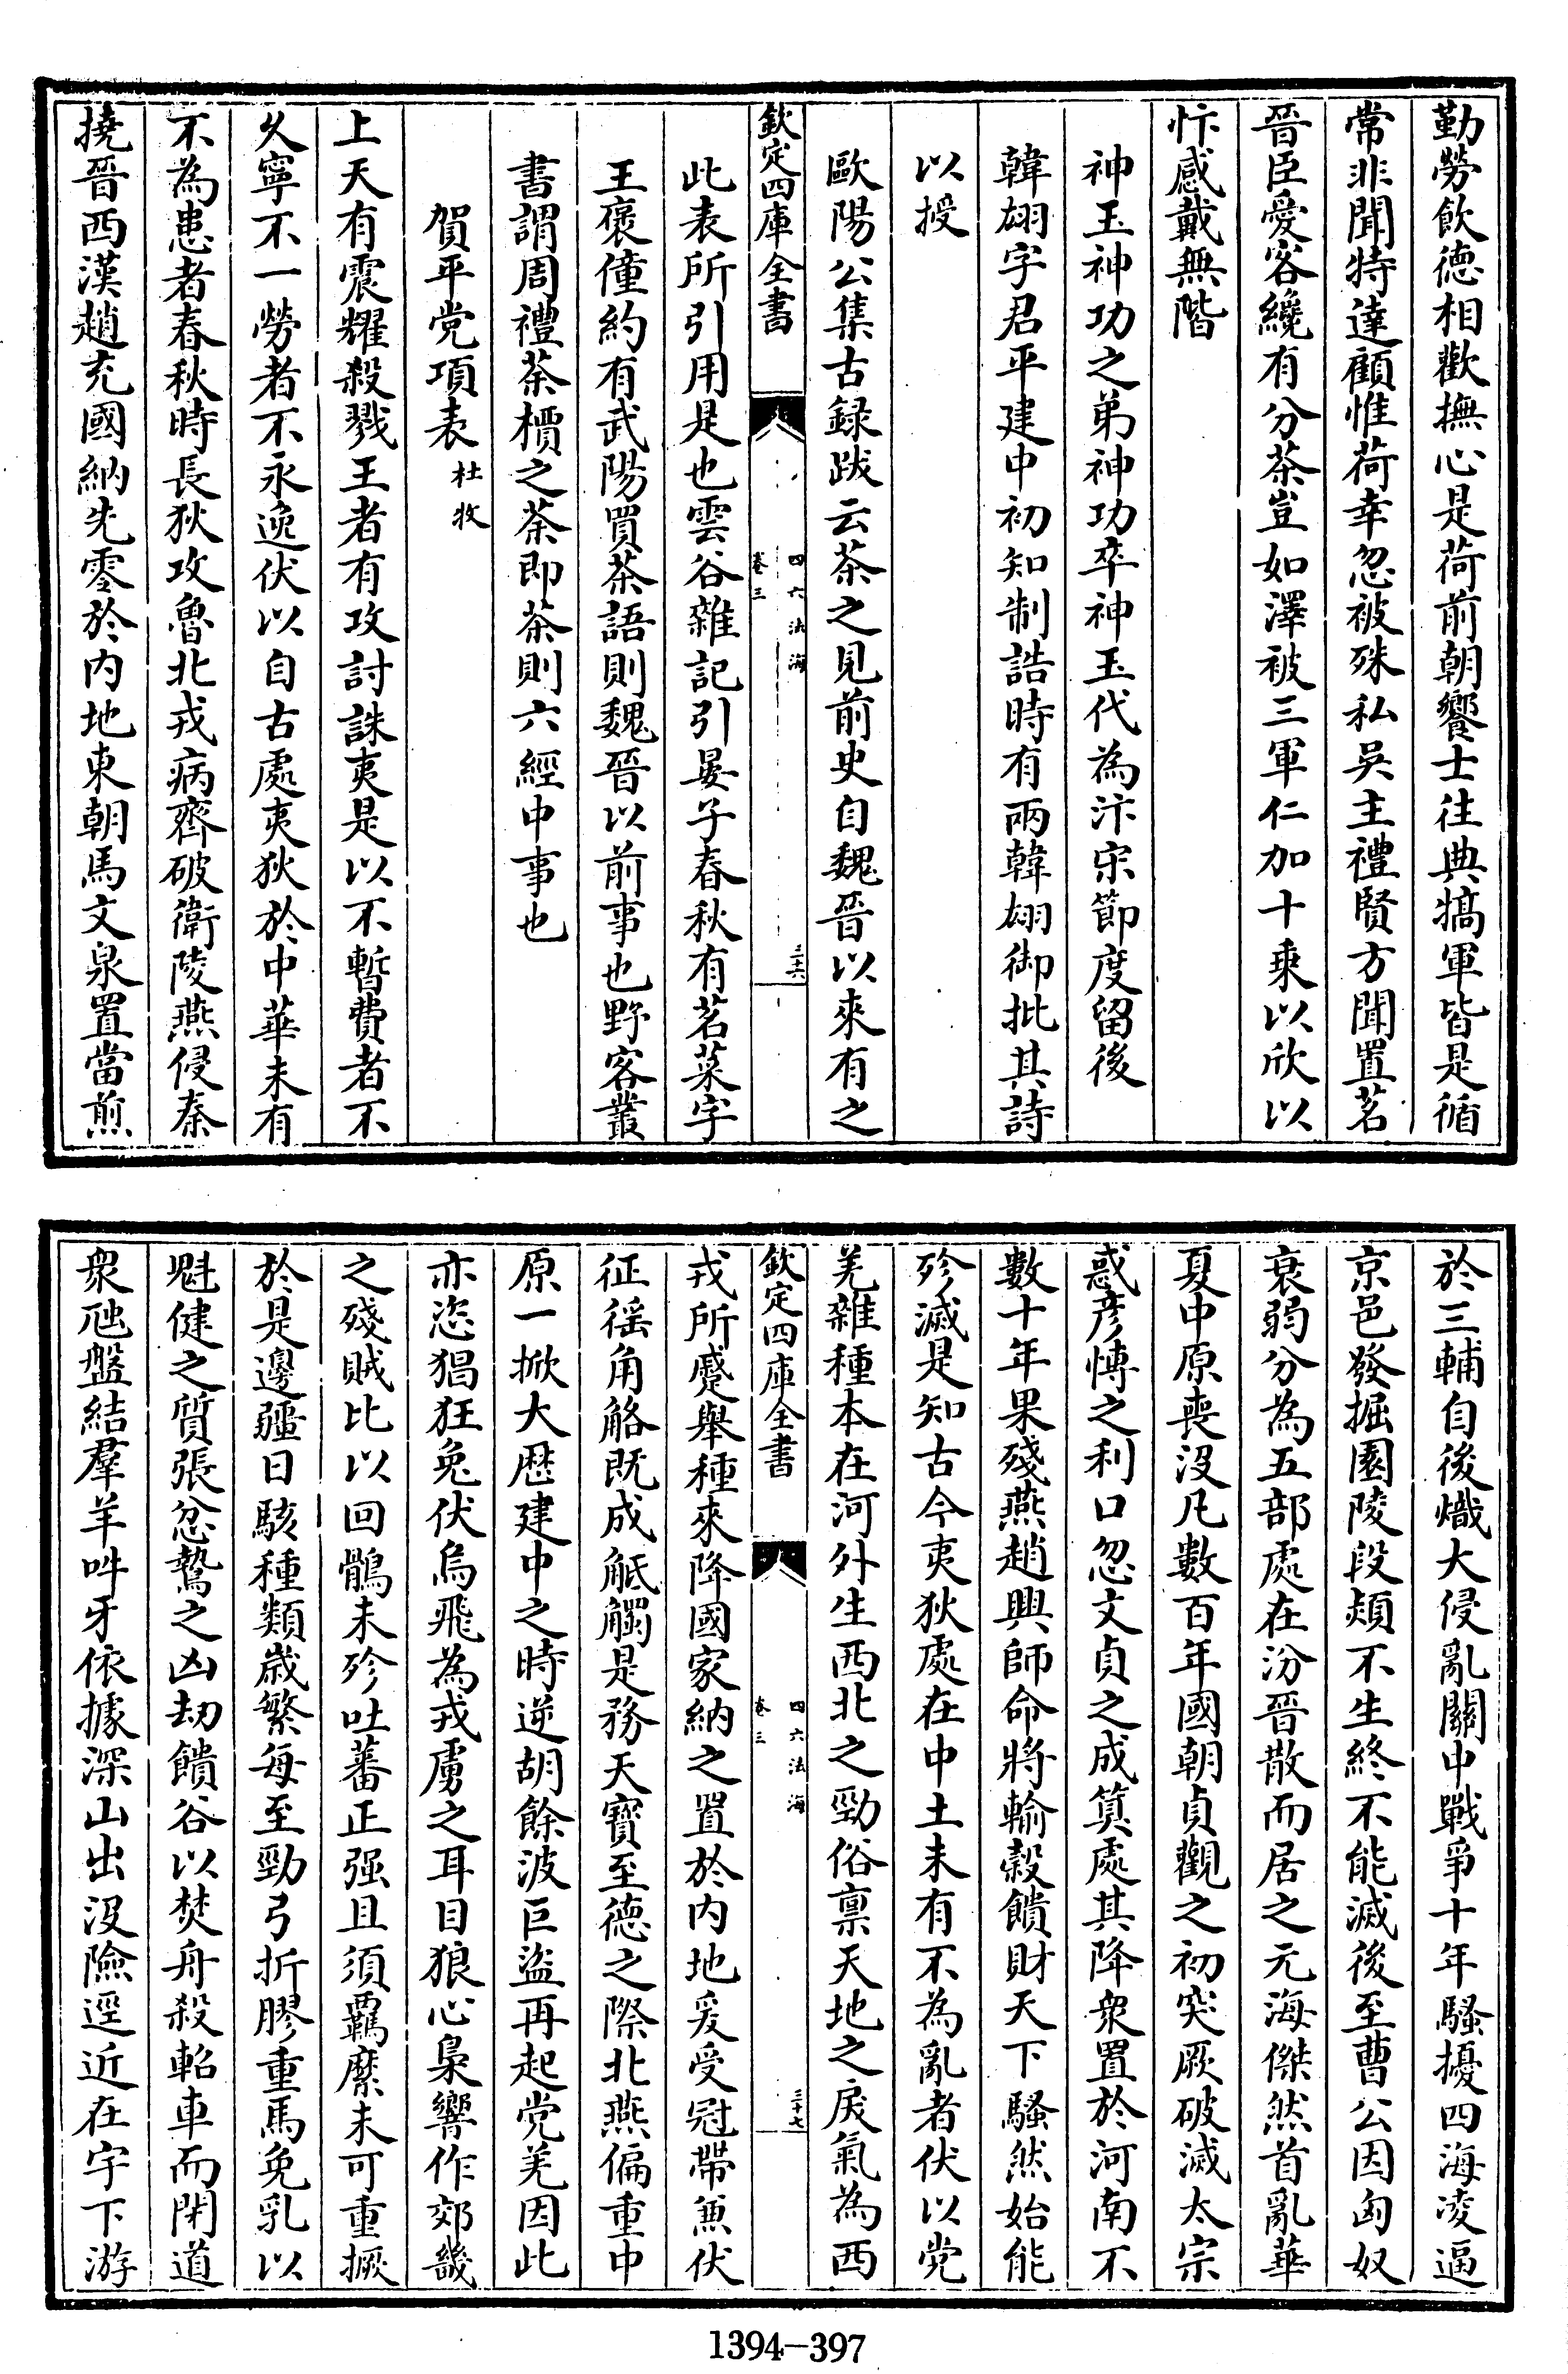 勤勞飲德相歡撫心是荷前朝饗士往典犒軍皆是循
常非聞特達顧惟荷幸忽被殊私吳主禮賢方聞置茗
晉臣愛客纔有分茶豈如澤被三軍仁加十乘以欣以
忭感戴無階
神玉神功之弟神功卒神玉代為汴宋節度留後
韓翃字君平建中初知制誥時有兩韓翃御批其詩
以授
歐陽公集古録跋云茶之見前史自魏晉以來有之
欽定四庫全書
四六法海
卷三
三十六
此表所引用是也雲谷雜記引晏子春秋有茗菜字
王褒僮約有武陽買茶語則魏晉以前事也野客叢
書謂周禮荼檟之荼即茶則六經中事也
賀平党項表 杜牧
上天有震耀殺戮王者有攻討誅夷是以不暫費者不
久寧不一勞者不永逸伏以自古處夷狄於中華未有
不為患者春秋時長狄攻魯北戎病齊破衛陵燕侵秦
撓晉西漢趙充國納先零於内地東朝馬文泉置當煎
於三輔自後熾大侵亂關中戰爭十年騷擾四海凌逼
京邑發掘園陵段熲不生終不能滅後至曹公因匈奴
衰弱分為五部處在汾晉散而居之元海傑然首亂華
夏中原喪没凡數百年國朝貞觀之初突厥破滅太宗
惑彦愽之利口忽文貞之成筭處其降衆置於河南不
數十年果殘燕趙興師命將輸榖饋財天下騷然始能
殄滅是知古今夷狄處在中土未有不為亂者伏以党
羌雜種本在河外生西北之勁俗禀天地之戾氣為西
欽定四庫全書
四六法海
卷三
三十七
戎所蹙舉種來降國家納之置於内地爰受冠帶兼伏
征徭角觡既成觝觸是務天寳至德之際北燕偏重中
原一掀大厯建中之時逆胡餘波巨盜再起党羌因此
亦恣猖狂兔伏烏飛為戎虜之耳目狼心梟響作郊畿
之殘賊比以回鶻未殄吐蕃正强且須羈縻未可重撅
於是邊疆日駭種類歲繁每至勁弓折膠重馬免乳以
魁健之質張忿鷙之凶劫饋谷以焚舟殺軺車而閉道
衆虺盤結羣羊吽牙依據深山出没險逕近在宇下游
1394—397